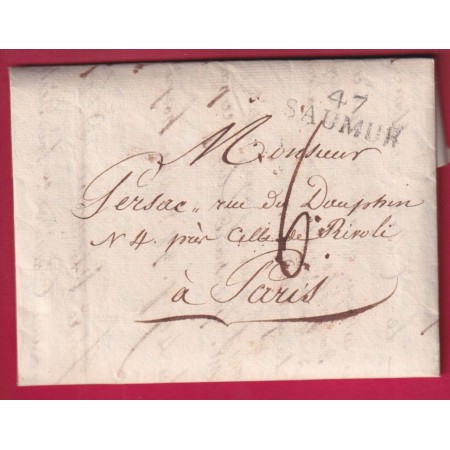 47
SAUMUR
Monsieur
Persac, rue du Dauphin
N 4. près celle de Rivoli
6
à Paris